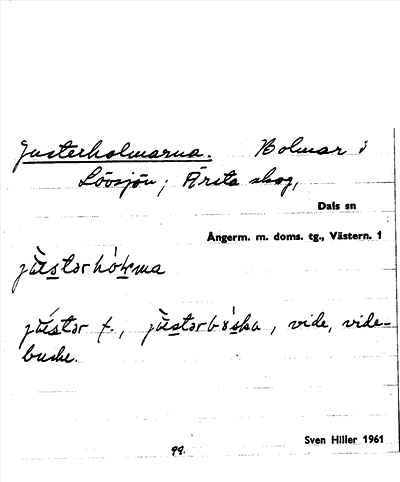 Justerholmarna. Holmar i
Lövsjön; Ärsta skog,
Dals sn
Ångerm. m. doms. tg., Västern. 1
jùstərhóɫma
jústər f., jùstərbúska, vide, vide-
buske.
99.
Sven Hiller 1961